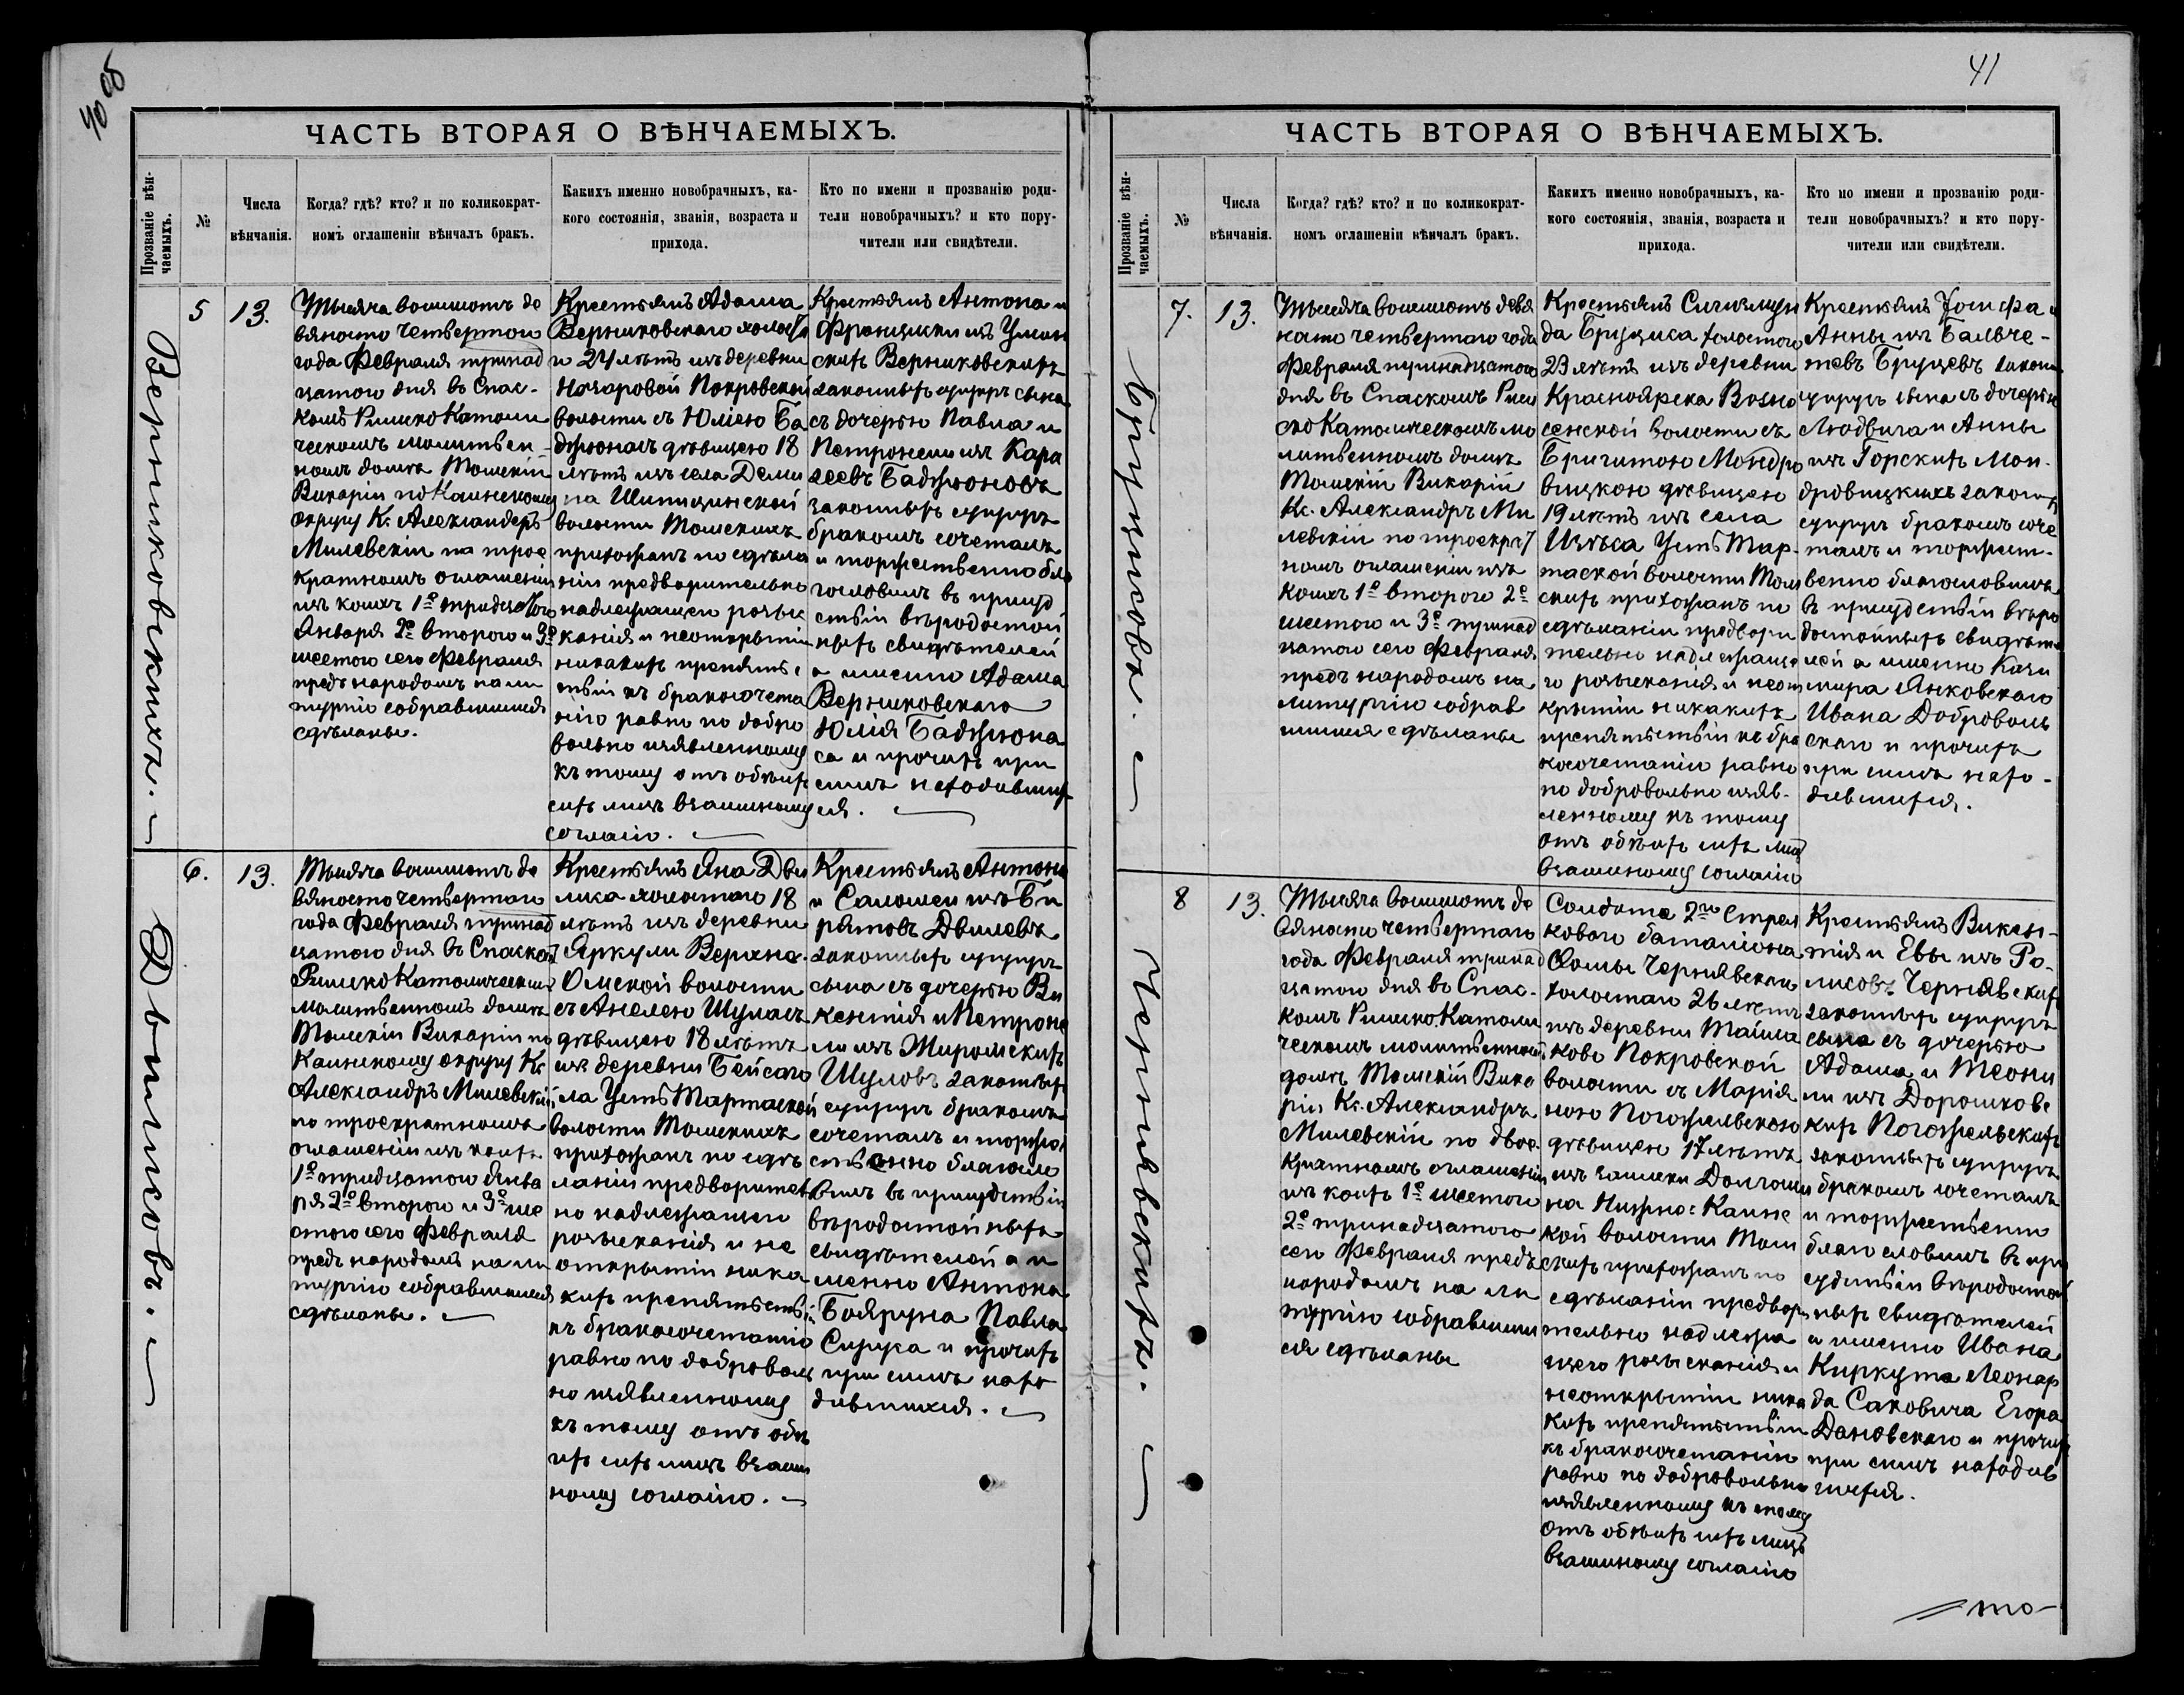 40 об
ЧАСТЬ ВТОРАЯ О ВѢНЧАЕМЫХЪ.
Прозваніе вѣн-
чаемыхъ.
№
Числа
вѣнчанія.
Когда? гдѣ? кто? и по коликократ-
номъ оглашеніи вѣнчалъ бракъ.
Какихъ именно новобрачныхъ, ка-
кого состоянія, званія, возраста и
прихода.
Кто по имени и прозванію роди-
тели новобрачныхъ? и кто пору-
чители или свидѣтели.
Верниковскихъ.
5
13.
Тысяча восемьсотъ де
вяносто четвертого
года Февраля тринад
цатого дня въ Спас-
комъ Римско Католи
ческомъ молитвен-
номъ домѣ Томскій
Викарій по Каинскому
округу Кс. Александръ
Милевскій на трое
кратномъ оглашеніи
изъ коихъ 1е тридцатого
Января 2е второго и 3е
шестого сего Февраля
предъ народомъ на ли
тургію собравшимся
сдѣланы.
Крестьянъ Адама
Верниковскаго холоста
го 24 лѣтъ изъ деревни
Назаровой Покровской
волости съ Юліею Ба
джюнасъ дѣвицею 18
лѣтъ изъ села Деми
на Шипицинской
волости Томскихъ
прихожанъ по сдѣла
ніи предворительно
надлежащего розыс
канія и неоткрытіи
никакихъ препятс
твій къ бракосочета
нію равно по добро
вольно изявленному
къ тому отъ обѣихъ
сихъ лицъ взаимному
согласію.
Крестьянъ Антона и
Францишки изъ
Верниковскихъ
законныхъ супруг сына
съ дочерью Павла и
Петронели изъ Кара
сеевъ Баджюновъ
законныхъ супруг
бракомъ сочеталъ
и торжественно бла
гословилъ въ присуд
ствіи вѣродостой
ныхъ свидѣтелей
а именно Адама
Верниковскаго
Юлія Баджюна
са и прочихъ при
симъ находивших
ся.
Двилисовъ.
6.
13.
Тысяча восемьсотъ де
вяносто четвертого
года Февраля тринад
цатого дня въ Спаском
Римско Католическом
молитвенномъ домѣ
Томскій Викарій по
Каинскому округу Кс
Александръ Милевскій
по троекратномъ
оглашеніи изъ коихъ
1е тридцатого Янва
ря 2е второго и 3е ше
стого сего Февраля
предъ народомъ на ли
тургію собравшимся
сдѣланы.
Крестьянъ Яна Дви
лиса холостого 18
лѣтъ изъ деревни
Яркули Верхне-
Омской волости
съ Анелею Шулисъ
дѣвицею 18 лѣтъ
изъ деревни Бейсаго
ла Усть Тартаской
волости Томскихъ
прихожанъ по сдѣ
ланіи предворитель
но надлежащего
розысканія и не
открытіи ника
кихъ препятствій
къ бракосочетанію
равно по доброволь
но изявленному
къ тому отъ обѣ
ихъ сихъ лицъ взаим
ному согласію.
Крестьянъ Антона
и Саломеи изъ Би
рятовъ Двилевъ
законныхъ супругъ
сына съ дочерью Ви
кентія и Петроне
ли изъ Жиромскихъ
Шуловъ законныхъ
супругъ бракомъ
сочеталъ и торже
ственно благосло
вилъ въ присудствіи
вѣродостойныхъ
свидѣтелей а и
менно Антона
Бояруна Павла
и прочихъ
при симъ нахо
дившихся.
41
ЧАСТЬ ВТОРАЯ О ВѢНЧАЕМЫХЪ.
Прозваніе вѣн-
чаемыхъ.
№
Числа
вѣнчанія.
Когда? гдѣ? кто? и по коликократ-
номъ оглашеніи вѣнчалъ бракъ.
Какихъ именно новобрачныхъ, ка-
кого состоянія, званія, возраста и
прихода.
Кто по имени и прозванію роди-
тели новобрачныхъ? и кто пору-
чители или свидѣтели.
Бруцисовъ.
7.
13.
Тысяча восемьсотъ девя
носто четвертого года
Февраля тринадцатого
дня въ Спаскомъ Рим
ско Католическомъ мо
литвенномъ домѣ
Томскій Викарій
Кс. Александръ Ми
левскій по троекрат
номъ оглашеніи изъ
коихъ 1е второго 2е
шестого и 3е тринад
цатого сего Февраля
предъ народомъ на
литургію собрав
шимся сдѣланы
Крестьянъ Сигизмун
да Бруциса холостого
23 лѣтъ изъ деревни
Красноярска Возне
сенской волости съ
Бригитою Мондро
вицкою дѣвицею
19 лѣтъ изъ села
Изѣса Усть Тар-
таской волости Том
скихъ прихожанъ по
сдѣланіи предвори
тельно надлежаще
го розысканія и неот
крытіи никакихъ
препятствій къ бра
косочетанію равно
по добровольно изяв-
ленному къ тому
отъ обѣихъ сихъ лиц
взаимному согласію
Крестьянъ Іосифа и
Анны изъ Бальче-
тевъ Бруцевъ закон
супруг сына съ дочерью
Людвига и Анны
изъ Горскихъ Мон-
дровицкихъ законых
супругъ бракомъ соче
талъ и торжест-
венно благословилъ
въ присудствіи вѣро
достойныхъ свидѣте
лей а именно Кази
мира Янковскаго
Ивана Доброволь
скаго и прочихъ
при симъ нахо-
дившихся.
Чернявскихъ.
8
13.
Тысяча восемьсотъ де
вяносто четвертаго
года Февраля тринад
цатого дня въ Спас-
комъ Римско Католи
ческомъ молитвенном
домѣ Томскій Вика
рій Кс. Александръ
Милевскій по двое
кратномъ оглашеніи
изъ коихъ 1е шестого
2е тринадцатого
сего Февраля предъ
народомъ на ли
тургію собравшим
ся сдѣланы
Солдата 2го Стрел
кового баталіона
Фомы Чернявскаго
холостаго 26 лѣтъ
изъ деревни Майза
ково Покровской
волости съ Марія
ною Погожельскою
дѣвицею 17 лѣтъ
изъ заимки Долгоши
на Нижно-Каинс
кой волости Том
скихъ прихожанъ по
сдѣланіи предвори
тельно надлежа
щего розысканія и
неоткрытіи ника
кихъ препятствій
къ бракосочетанію
равно по добровольно
изявленному къ тому
отъ обѣихъ сихъ лицъ
взаимному согласію
Крестьянъ Викен-
тія и Евы изъ Ро-
лисовъ Чернявских
законныхъ супругъ
сына съ дочерью
Адама и Теофи
ли изъ Дорошковс
кихъ Погожельскихъ
законныхъ супругъ
бракомъ сочеталъ
и торжественно
благословилъ въ при
судствіи вѣродостой
ныхъ свидѣтелей
а именно Ивана
Киркута Леонар
да Саковича Егора
Дановскаго и прочих
при симъ находив
шихся.
то-